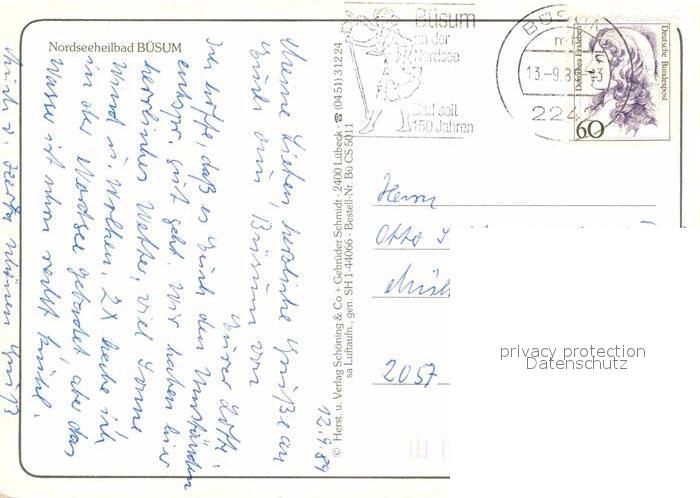 Nordseeheilbad BÜSUM
12.9.89
Meine Lieben, herzliche Grüße an
Euch aus Büsum von
Eurer Lotte.
Ich hoffe, daß es Euch den Umständen
entspr. gut geht. Wir haben hier
herrliches Wetter, viel Sonne
Wind u. Wolken, 2x habe ich
in der Nordsee gebadet aber das
Wasser ist schon recht kühl.
schönen Gruß
© Herst. u. Verlag Schöning & Co + Gebrüder Schmidt · 2400 Lübeck · ☎ (0451) 31224
sa Luftaufn., gen. SH 1-44066 · Bestell-Nr. Bü CS 5011
Büsum
an der
Nordsee
Bad seit
150 Jahren
13.-9.8
224
Dorothea Erxleben
Deutsche Bundespost
60
Herrn
Otto S
2057
privacy protection
Datenschutz